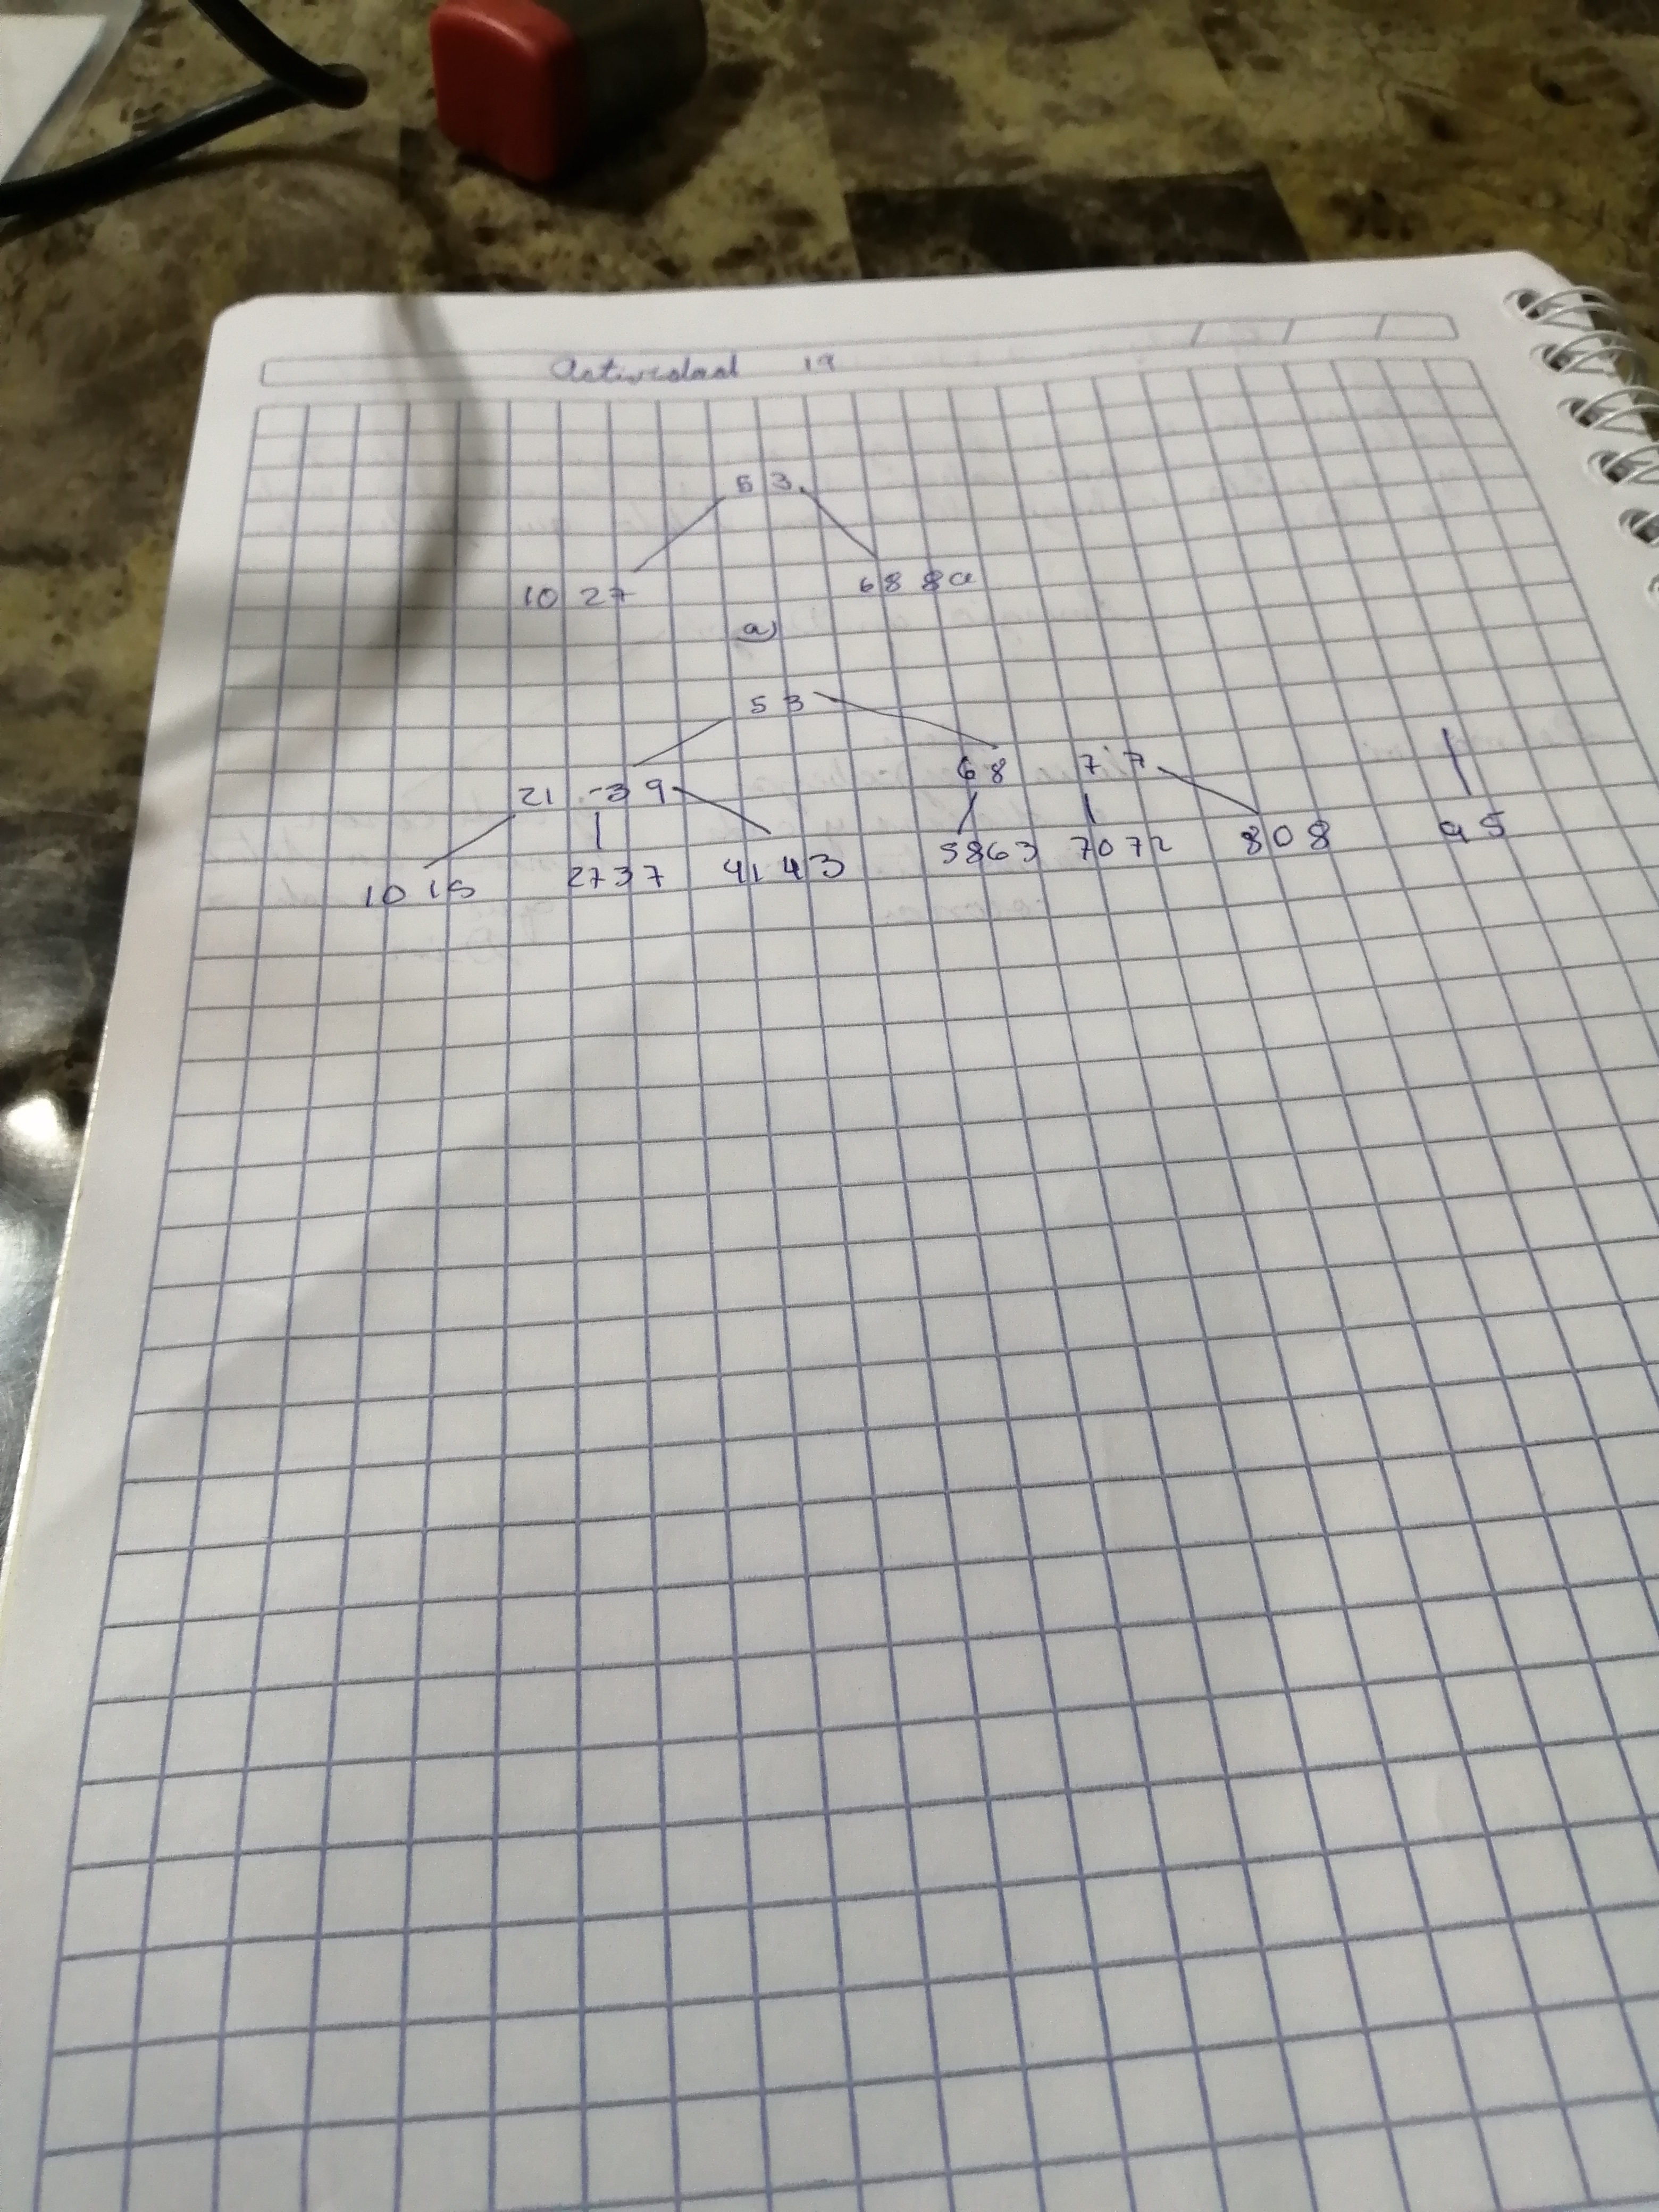 Actividad 19
53
10 27 68 8a
a)
53
21 -39 68 77
10 15 2737 41 43 5863 7072 808 95